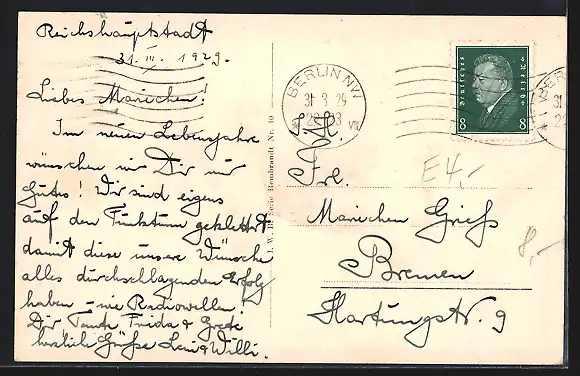 Reichshauptstadt
31. III. 1929.
Liebes Mariechen!
Im neuen Lebensjahre
wünschen wir Dir nur
Gutes! Wir sind eigens
auf den Funkturm geklettert
damit diese unsere Wünsche
alles durchschlagenden Erfolg
haben - wie Radiowellen!
Dir Tante Frida & Grete
herzliche Grüße Leni & Willi.
J. W. B. Serie Rembrandt Nr. 10
BERLIN NW
31 3 29
Deutsches Reich
8 8
BERLIN
31
Frl.
Mariechen Grieß
Bremen
Hartungstr. 9
E4,-
8,-